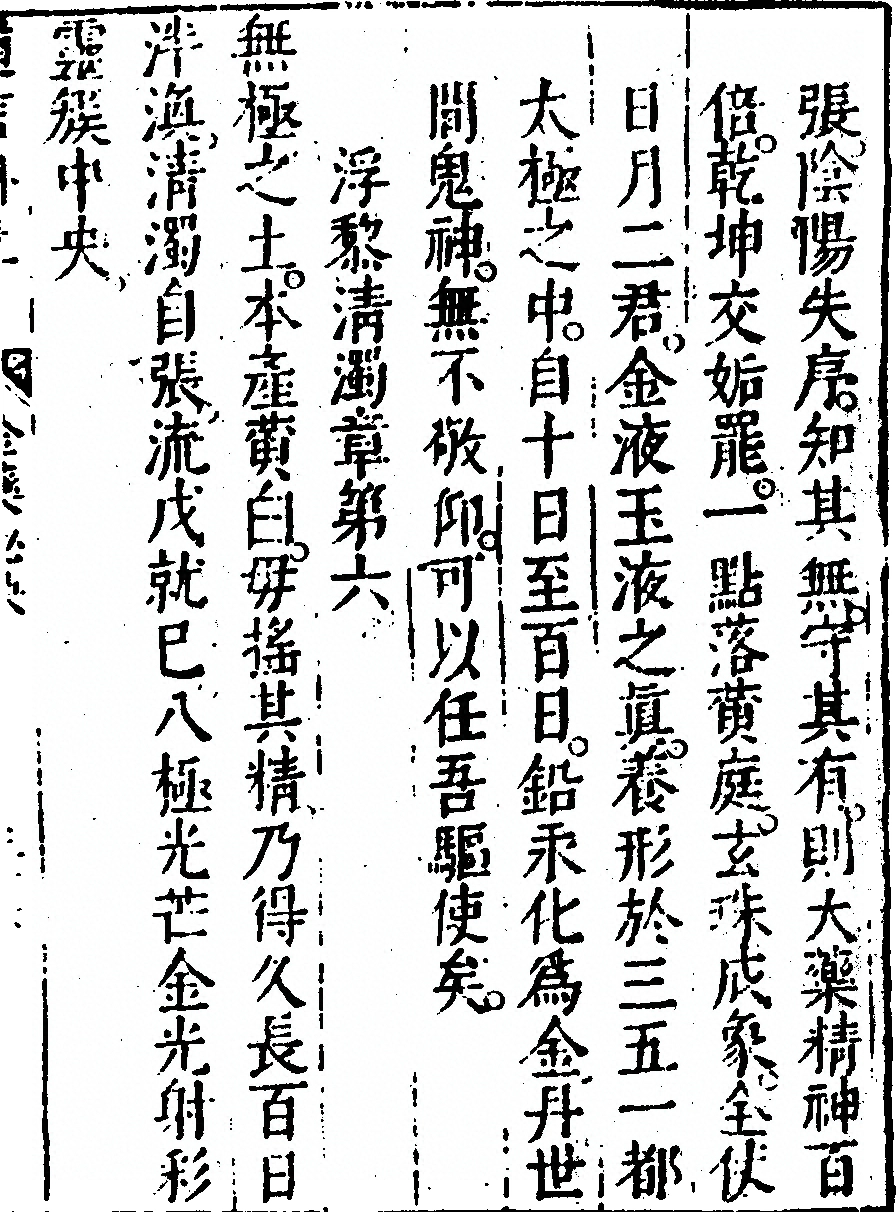 張陰陽失序。知其無。守其有。則大藥精神百
倍。乾坤交姤罷。一點落黃庭。玄珠成象。全仗
日月二君。金液玉液之眞。養形於三五一都
太極之中。自十日至百日。鉛汞化爲金丹世
間鬼神。無不敬仰。可以任吾驅使矣。
浮黎淸濁章第六
無極之土。本產黃白。毋搖其精乃得久長百日
泮澒淸濁自張流戊就巳八極光芒金光射彩
靈篆中央